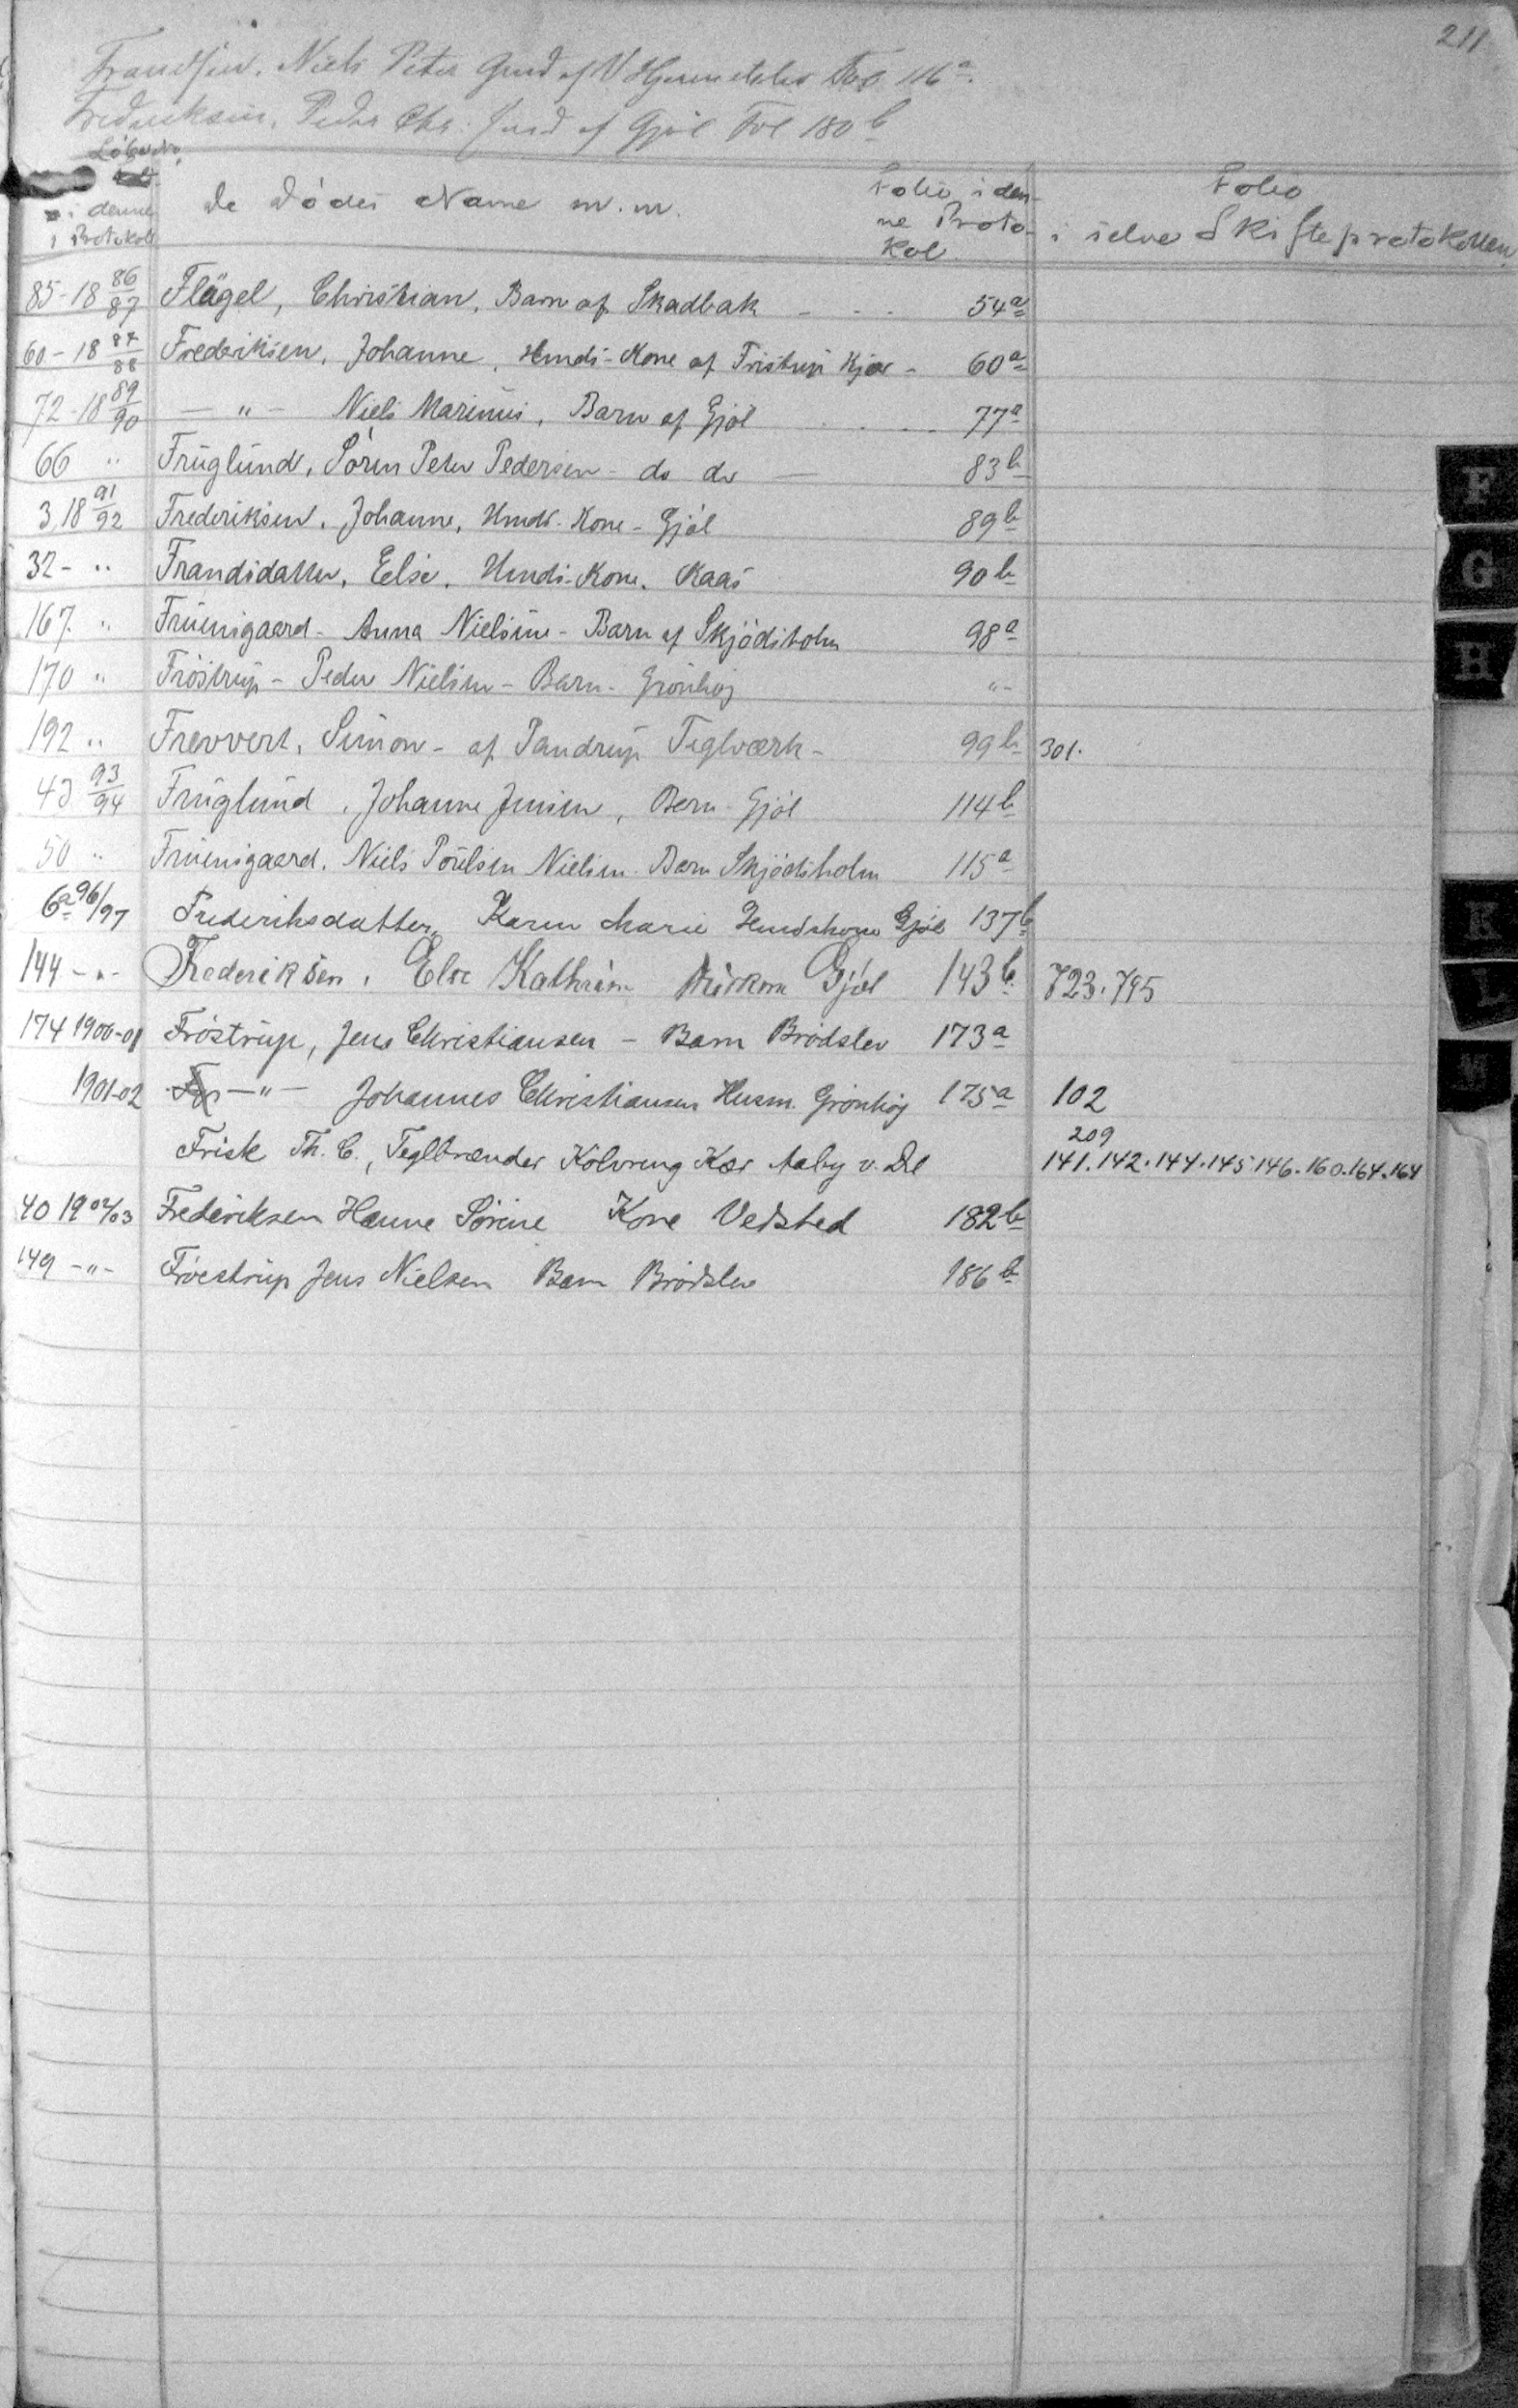 211
Frandsen, Niels Peter Gmd af V Hjermitslev Fol. 116a.
Frederiksen, Peder Chr. Jmd af Gjöl Fol 180b
Löbe No.
i denne
Protokol
De Dödes Navne m. m.
Folio i den-
ne Proto-
kol
Folio
i selve Skifteprotokollen
85-18 86/87 Flügel, Christian, Barn af Skadbak - - - 54a
60-18 87/88 Frederiksen, Johanne, Hmds-Kone af Fristrup Kjær - 60a
72-18 89/90 - " - Niels Marinus, Barn af Gjöl 77a
66 " Fruglund, Sören Peter Pedersen - do do - 83b
3,18 91/92 Frederiksen, Johanne, Hmds. Kone - Gjöl 89b
32- " Frandsdatter, Else, Hmds-Kone, Kaas 90b
167. " Fruensgaard - Anna Nielsine - Barn af Skjödsholm 98a
170 " Fröstrup - Peder Nielsen - Barn - Grönhöj "-
192 " Frevvert, Simon - af Pandrup Teglværk - 99b 301.
43 93/94 Fruglund, Johanne Jensen, Barn - Gjöl 114b
50 " Fruensgaard, Niels Poulsen Nielsen. Barn Skjödsholm 115a
6a 96/97 Frederiksdatter, Karen Marie Hmdskone Gjöl 137b
144 -"- Frederiksen, Else Kathrine Gjöl 143b 723.795
174 1900-01 Fröstrup, Jens Christiansen - Barn Brödslev 173a
1901-02 - " - Johannes Christiansen Husm. Grönhöj 175a 102
209
Frisk Th. C., Teglbrænder Kölvreng Kær Aaby v. Del 141.142.144.145.146.160.164.164
40 1902/03 Frederiksen Hanne Sörine Kone Vedsted 182b
149 -"- Fröestrup Jens Nielsen Barn Brödslev 186b
F
G
H
K
L
M